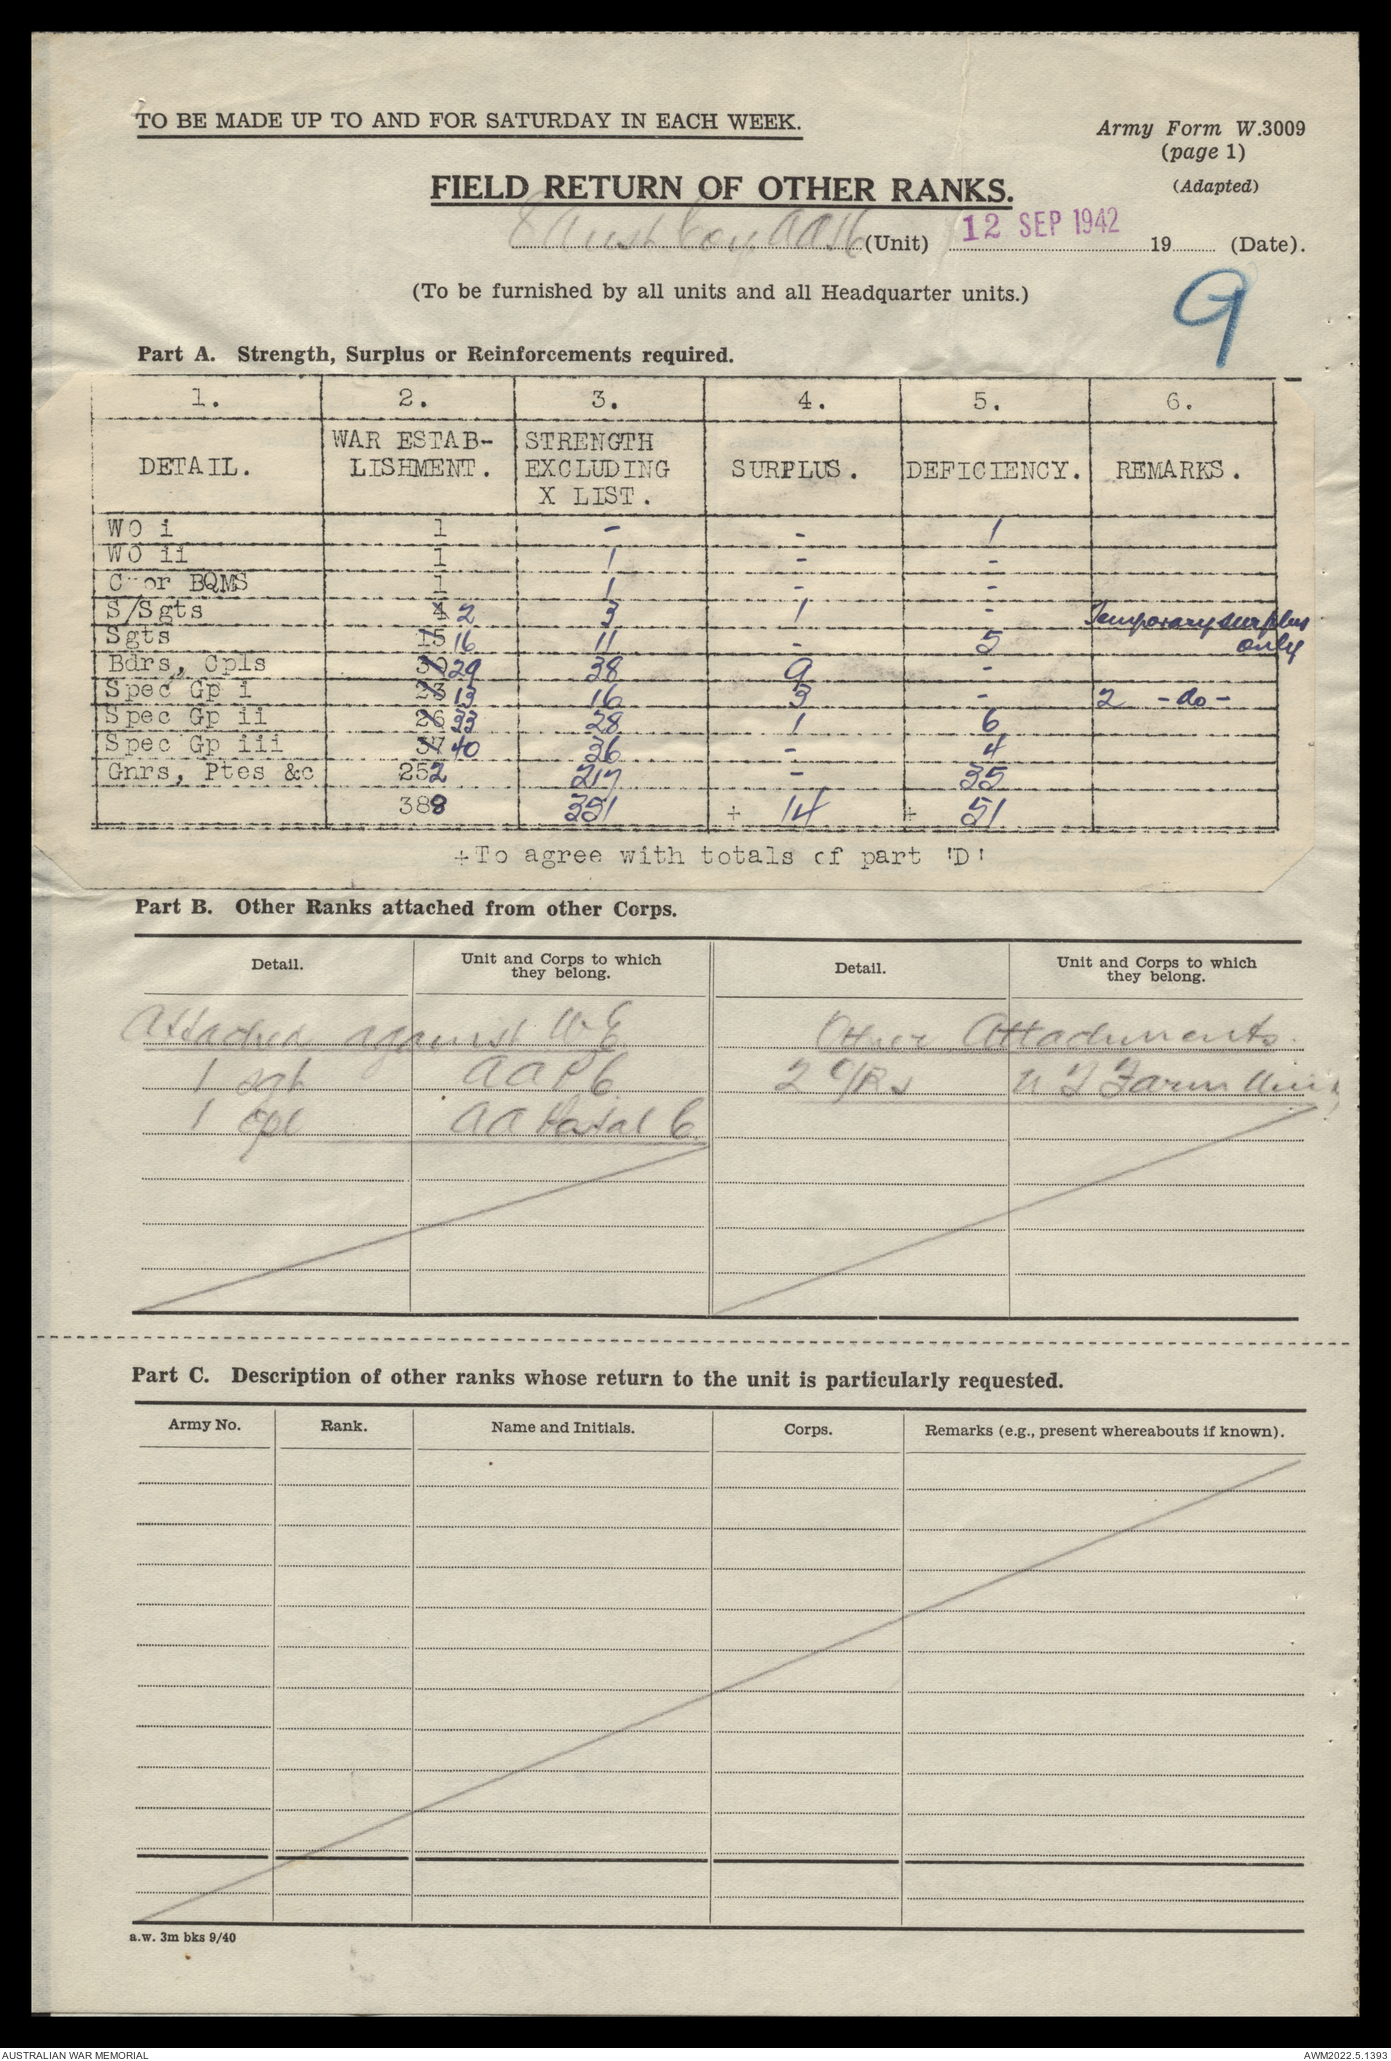 TO BE MADE UP TO AND FOR SATURDAY IN EACH WEEK.
Army Form W.3009
(page 1)
(Adapted)
FIELD RETURN OF OTHER RANKS.
8 Aust Coy AASC (Unit) 12 SEP 1942 19 (Date).
(To be furnished by all units and all Headquarter units.)
9
Part A. Strength, Surplus or Reinforcements required.
1. 2. 3. 4. 5. 6.
DETAIL. WAR ESTAB-LISHMENT. STRENGTH EXCLUDING X LIST. SURPLUS. DEFICIENCY. REMARKS.
WO i 1 - - 1
WO ii 1 1 - -
C or BQMS 1 1 - -
S/Sgts 4 2 3 1 - Temporary surplus only
Sgts 15 16 11 - 5
Bdrs, Cpls 30 29 38 9 -
Spec Gp i 23 13 16 3 - 2 -do-
Spec Gp ii 26 33 28 1 6
Spec Gp iii 37 40 36 - 4
Gnrs, Ptes &c 252 217 - 35
388 351 + 14 + 51
+To agree with totals of part 'D'
Part B. Other Ranks attached from other Corps.
Detail. Unit and Corps to which they belong. Detail. Unit and Corps to which they belong.
Attached against W.E. Other Attachments.
1 sgt AAPC 2 O/Rs Farm Unit
1 cpl AA Postal C
Part C. Description of other ranks whose return to the unit is particularly requested.
Army No. Rank. Name and Initials. Corps. Remarks (e.g., present whereabouts if known).
a.w. 3m bks 9/40
AUSTRALIAN WAR MEMORIAL
AWM2022.5.1393